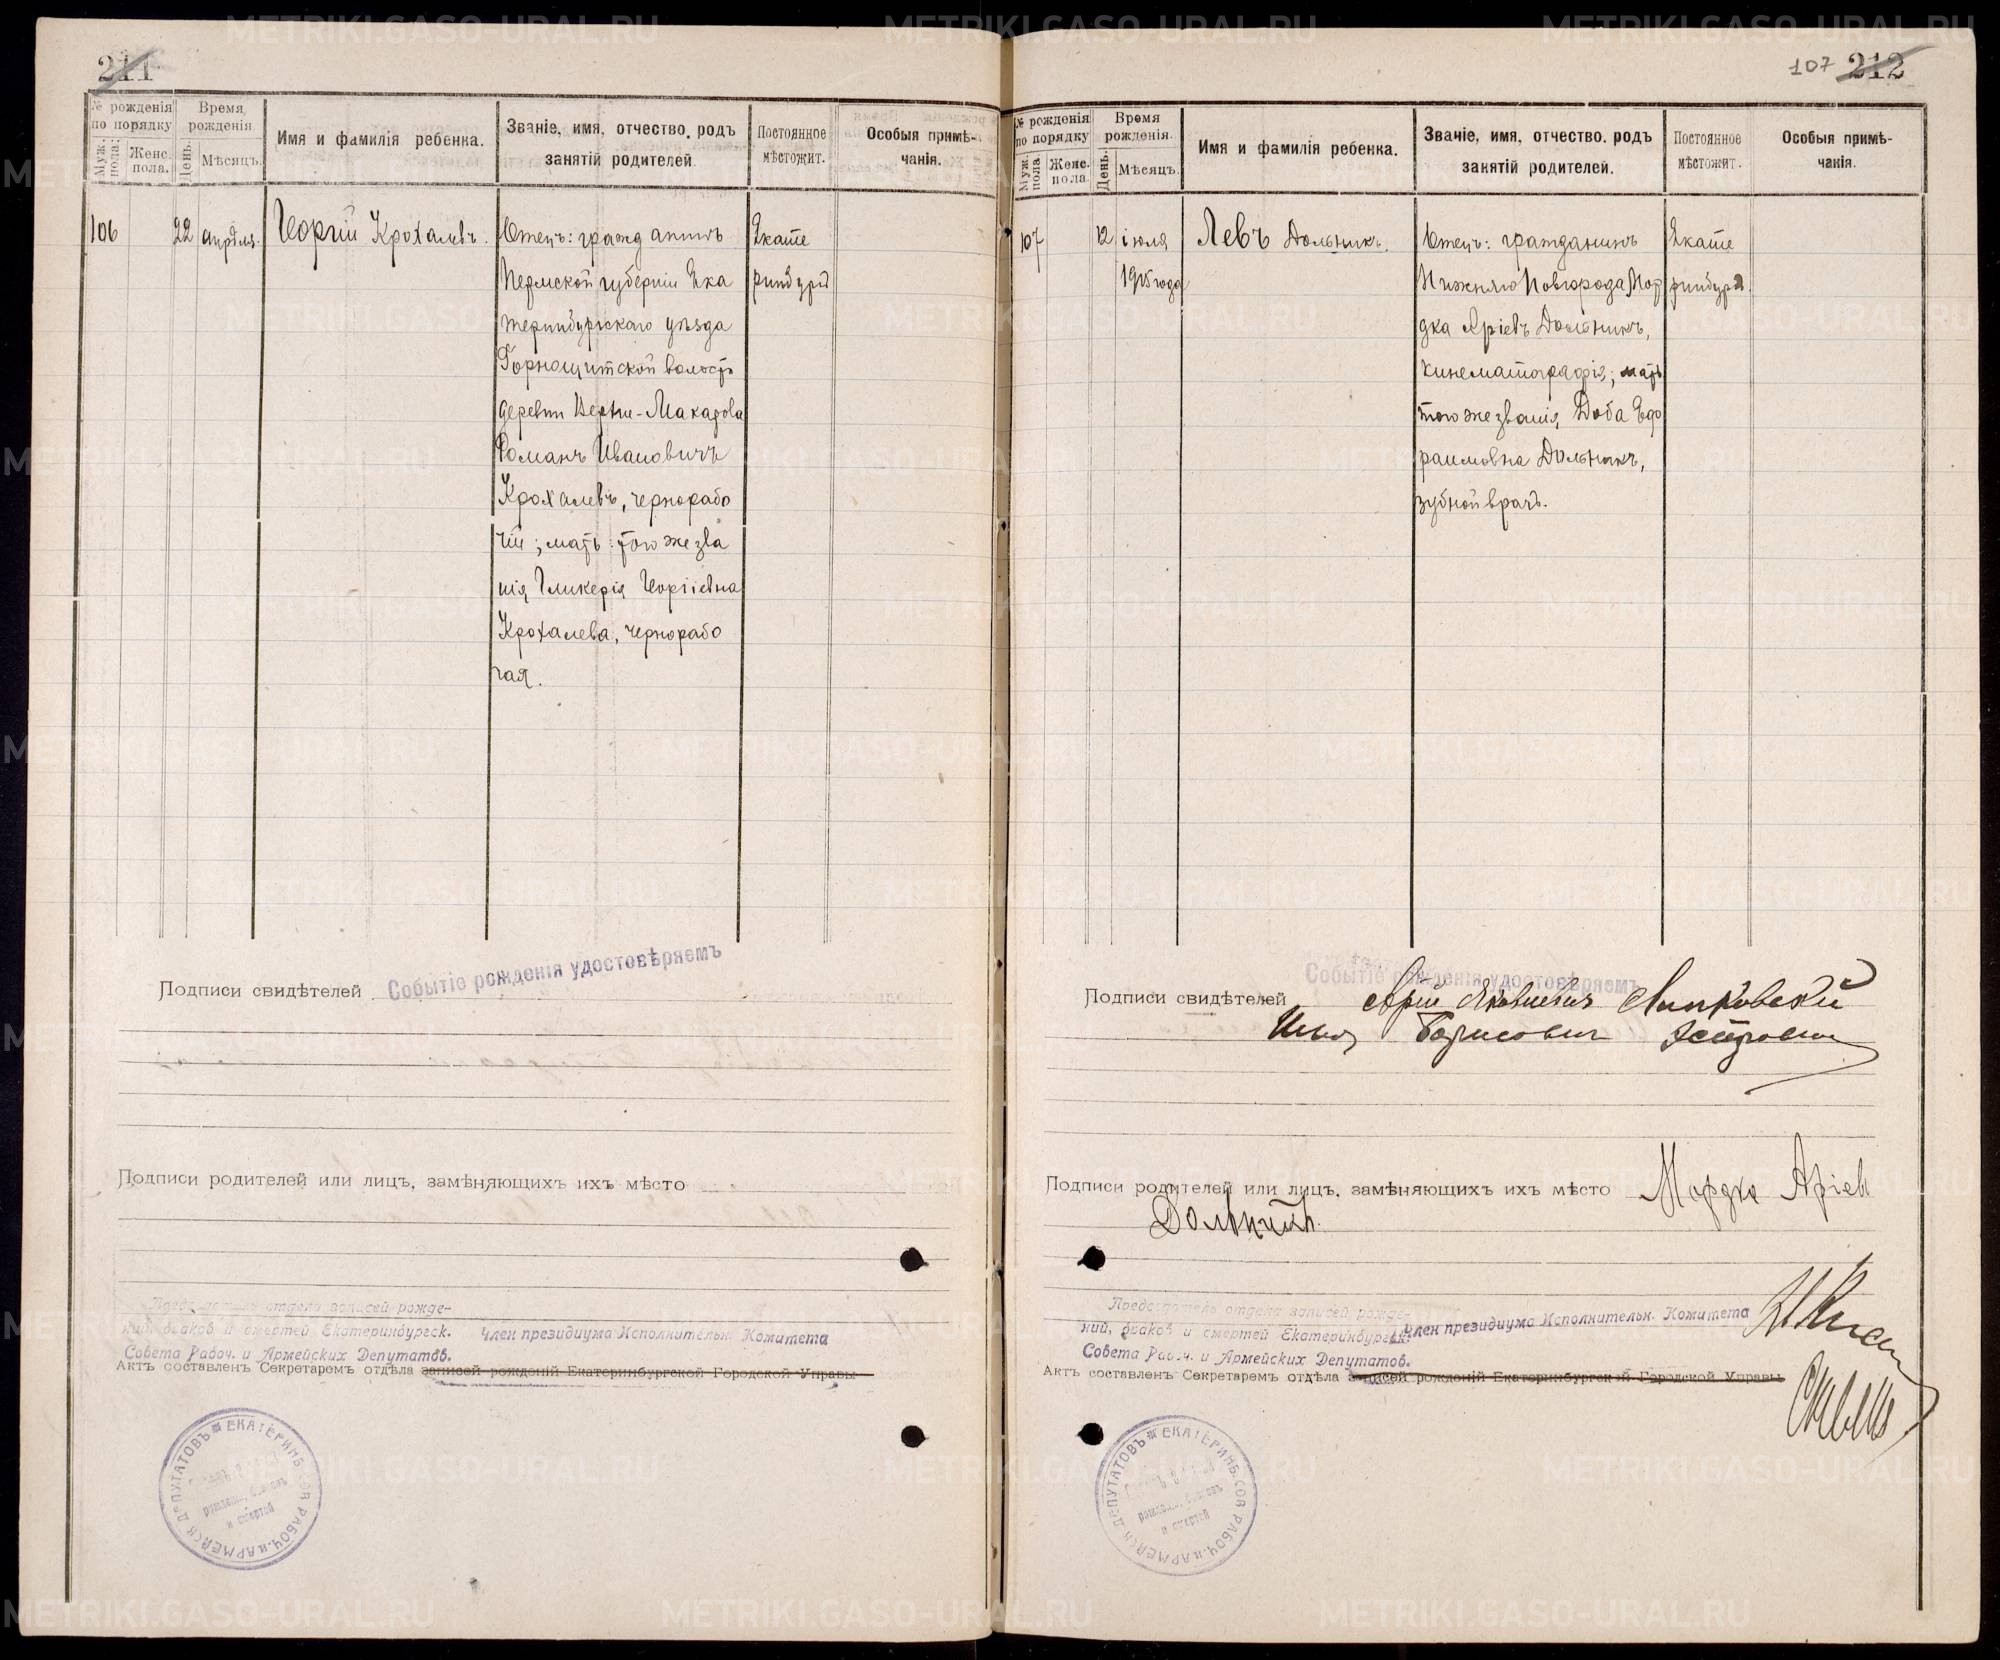 211
№ рожденія по порядку
Муж. пола.
Женс. пола.
Время рожденія
День.
Мѣсяцъ.
Имя и фамилія ребенка.
Званіе, имя, отчество, родъ занятій родителей.
Постоянное мѣстожит.
Особыя примѣчанія.
106
22
апрѣля.
Георгій Крохалевъ.
Отецъ: гражданинъ
Пермской губерніи Ека
теринбургскаго уѣзда
Горнощитской волости
деревни Верхне-Макарова
Романъ Ивановичъ
Крохалевъ, чернорабо
чій; мать: того же зва
нія Гликерія Георгіевна
Крохалева, чернорабо
чая.
Екате
ринбургъ
Подписи свидѣтелей
Событіе рожденія удостовѣряемъ
Подписи родителей или лицъ, замѣняющихъ ихъ мѣсто
Председатель отдела записей рожде-
ний, браков и смертей Екатеринбургск.
Совета Рабоч. и Армейских Депутатов.
Член президиума Исполнительн. Комитета
Актъ составленъ Секретаремъ отдѣла записей рожденій Екатеринбургской Городской Управы
ЕКАТЕРИНБ. СОВ. РАБОЧ. и АРМЕЙСК. ДЕПУТАТОВЪ
рожденій, браковъ
и смертей
107 212
№ рожденія по порядку
Муж. пола
Женс. пола.
Время рожденія.
День.
Мѣсяцъ.
Имя и фамилія ребенка.
Званіе, имя, отчество, родъ занятій родителей.
Постоянное мѣстожит.
Особыя примѣчанія.
107
12
іюля
1915 года
Левъ Дольникъ.
Отецъ: гражданинъ
Нижняго Новгорода Мор
дка Аріевъ Дольникъ,
кинематографія; мать
того же званія, Доба Еф
раимовна Дольникъ,
зубной врачъ.
Екате
ринбургъ.
Событіе рожденія удостовѣряемъ
Подписи свидѣтелей
Арій Яковлевич Липковский
Илья Борисович
Подписи родителей или лицъ, замѣняющихъ ихъ мѣсто Мордка Аріев
Дольникъ.
Председатель отдела записей рожде-
ний, браков и смертей Екатеринбургск.
Совета Рабоч. и Армейских Депутатов.
Член президиума Исполнительн. Комитета
Актъ составленъ Секретаремъ отдѣла записей рожденій Екатеринбургской Городской Управы
ЕКАТЕРИНБ. СОВ. РАБОЧ. и АРМЕЙСК. ДЕПУТАТОВЪ
рожденій, браковъ
и смертей
METRIKI.GASO-URAL.RU